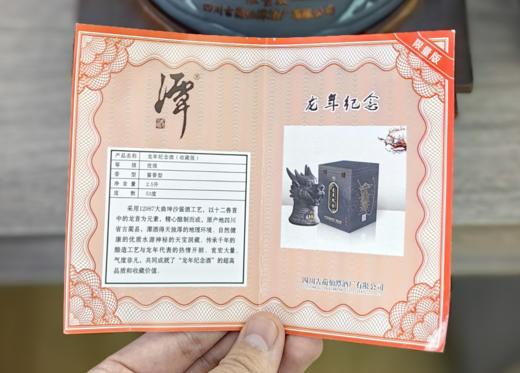 潭
产品名称 龙年纪念酒（收藏版）
等 级 优级
香 型 酱香型
净 含 量 2.5升
度 数 53度
采用12987大曲坤沙酱酒工艺，以十二兽首
中的龙首为元素，精心酿制而成，原产地四川
省古蔺县，潭酒得天独厚的地理环境、自然健
康的优质水源神秘的天宝洞藏。传承千年的
酿造工艺与龙年代表的热情开朗、宏宏大量
气度非凡，共同成就了“龙年纪念酒”的超高
品质和收藏价值。
限量版
龙年纪念
四川古蔺仙潭酒厂有限公司